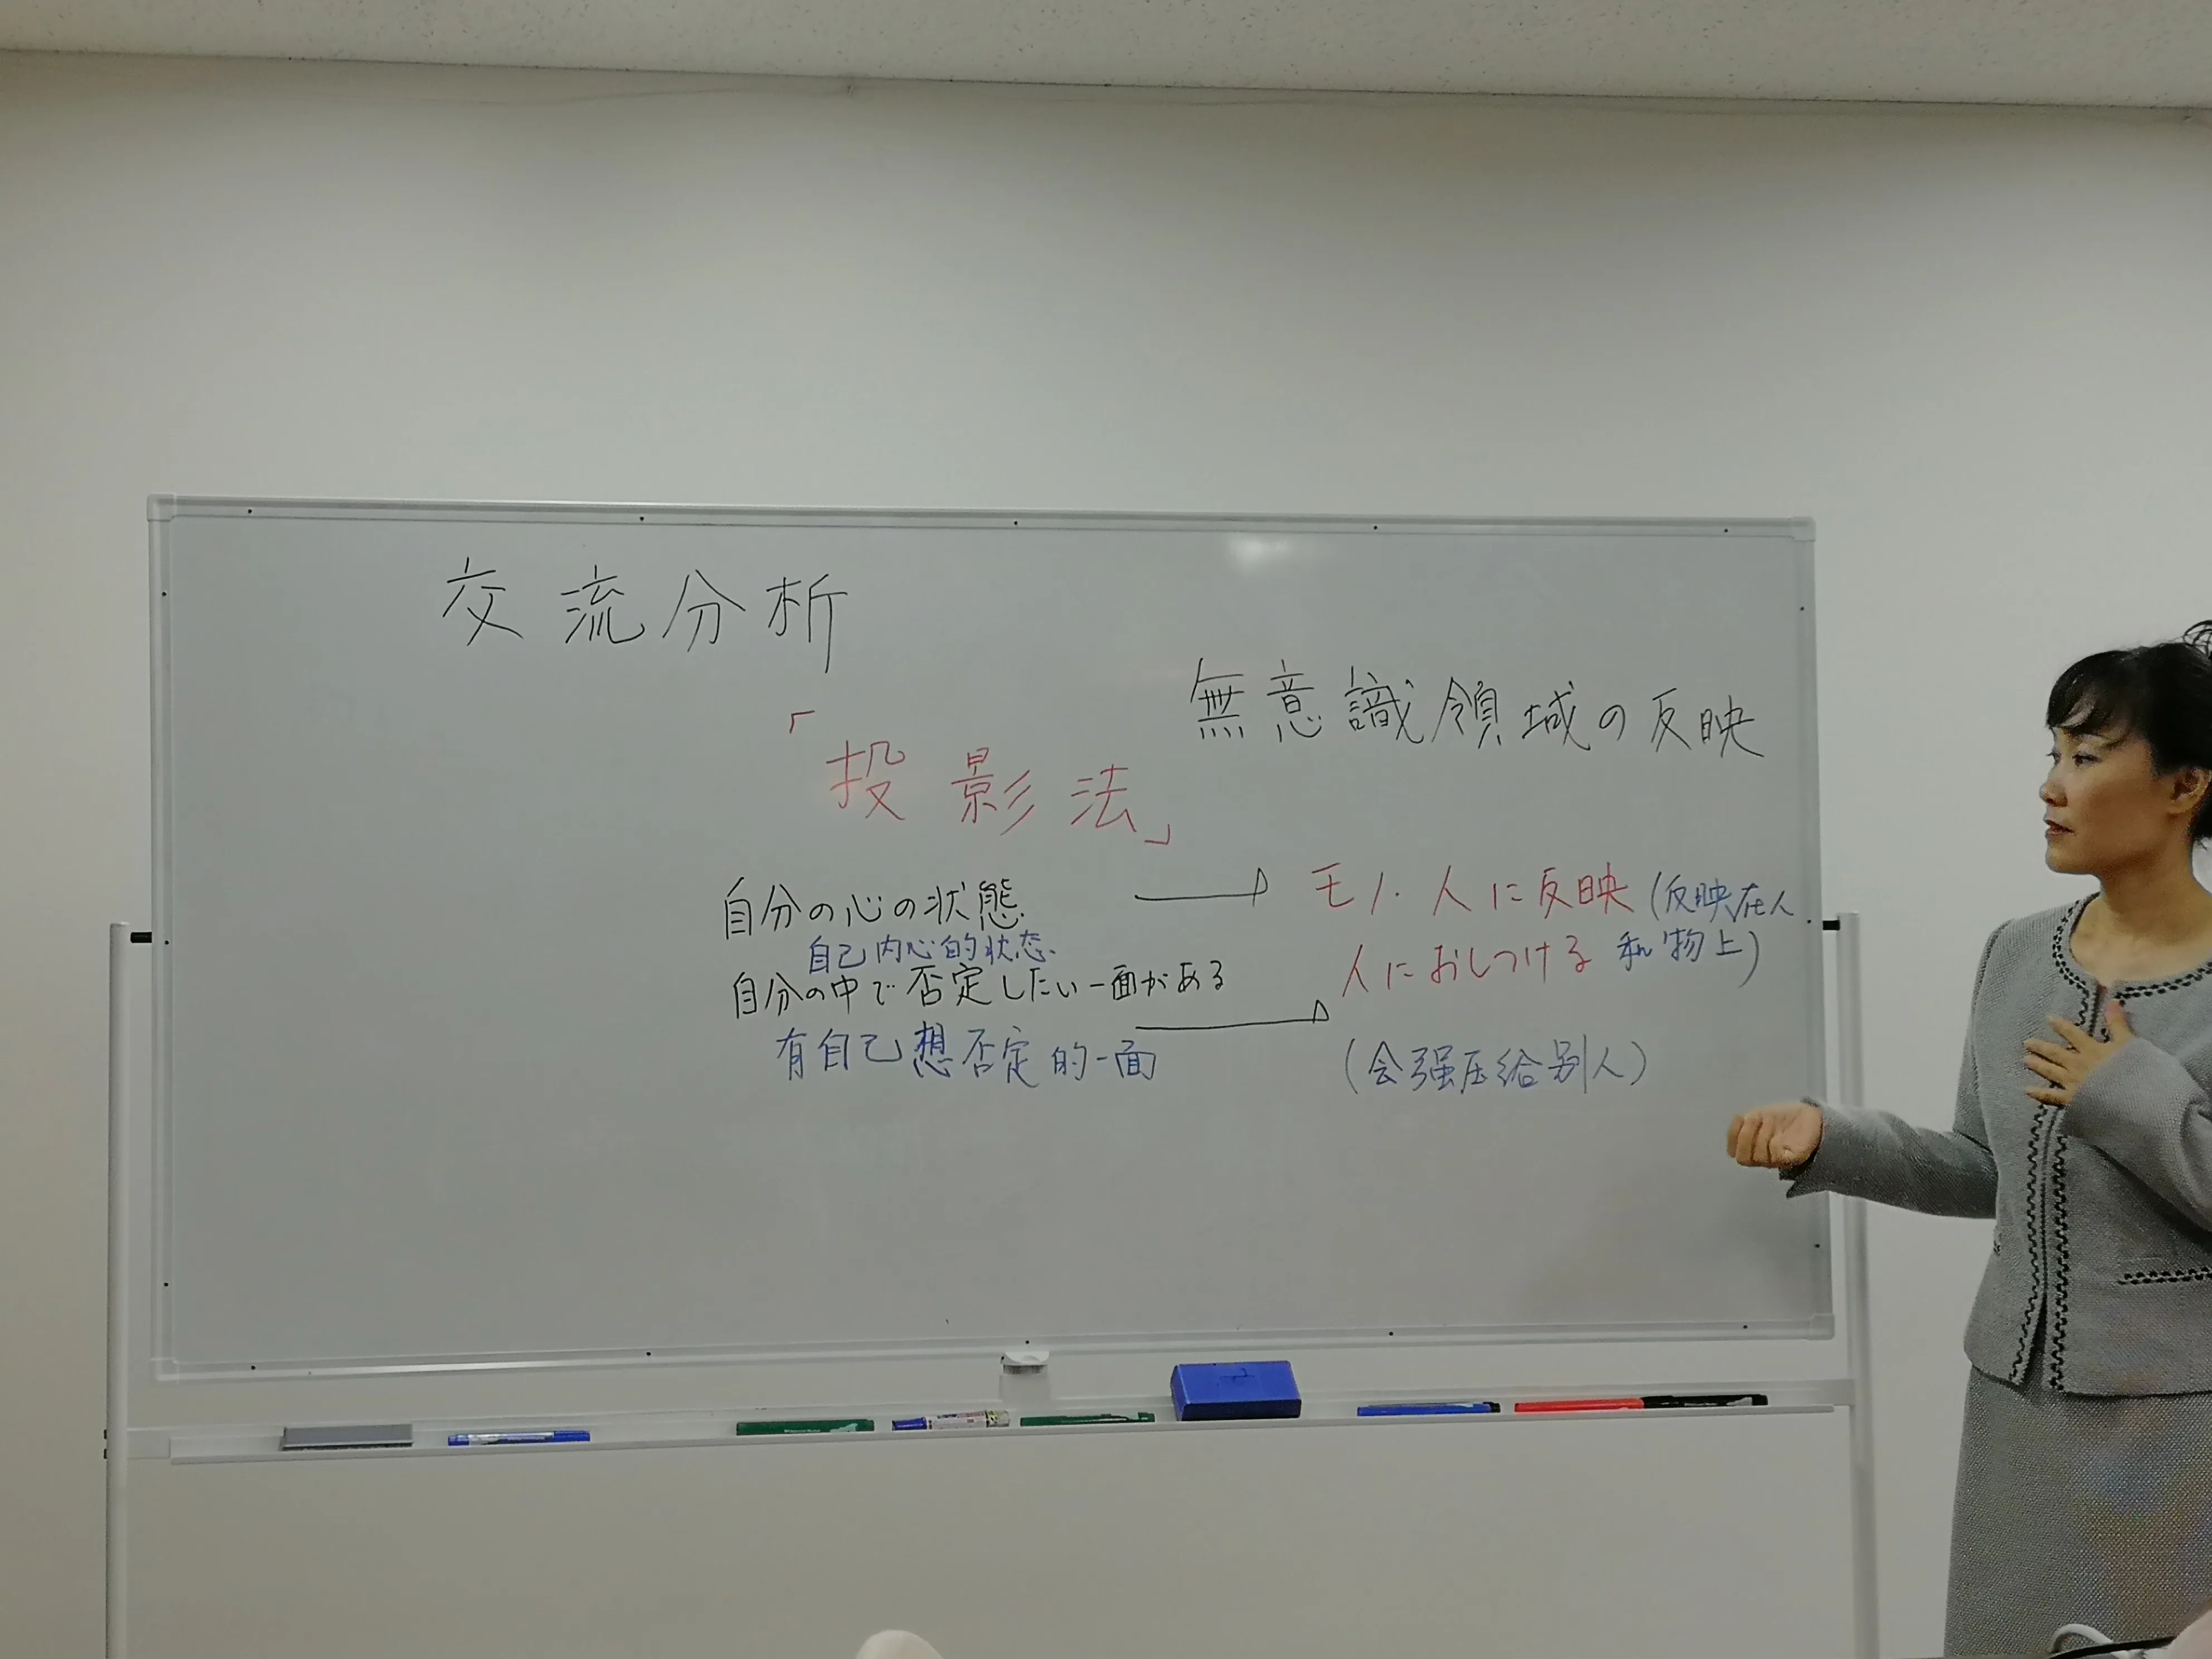 交流分析
無意識領域の反映
「投影法」
自分の心の状態 → モノ・人に反映 (反映在人
自己内心的状态 人におしつける 和物上)
自分の中で否定したい一面がある →
有自己想否定的一面 (会强压给别人)